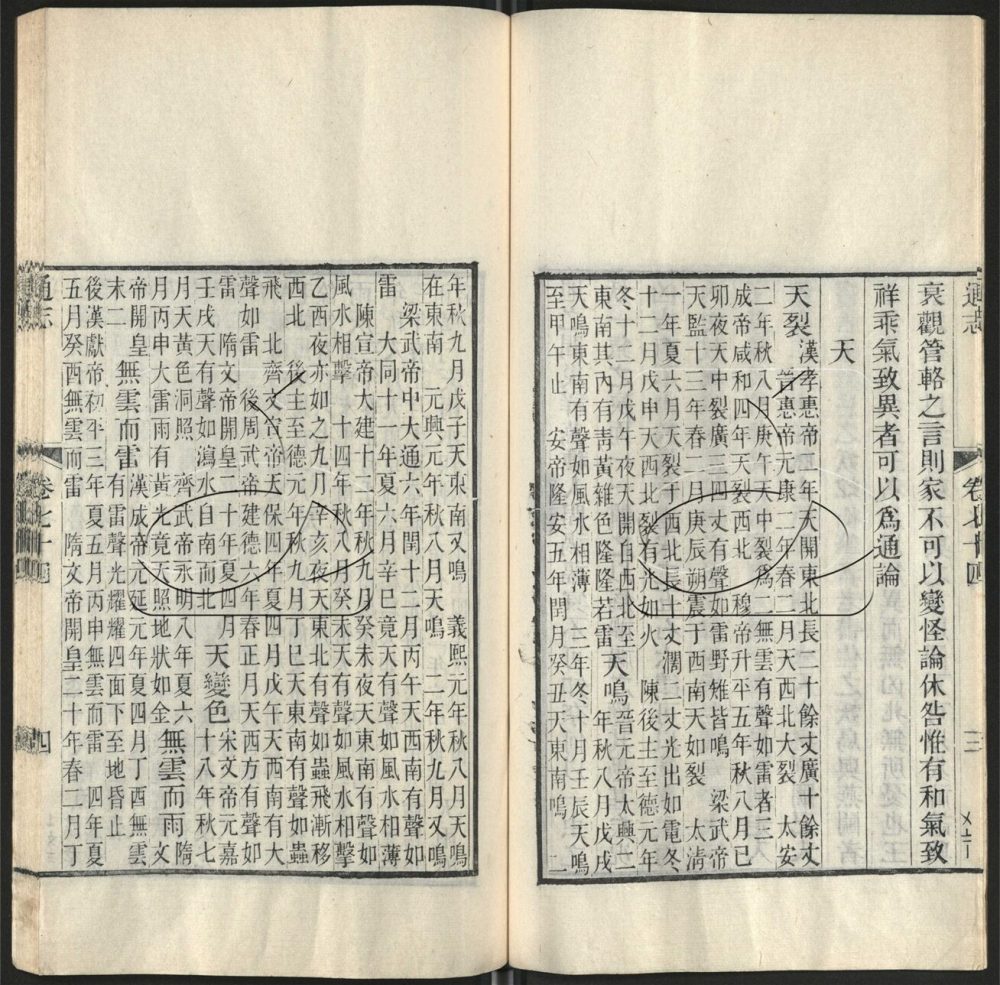 通志 卷七十四 三
衰觀管輅之言則家不可以變怪論休咎惟有和氣致
祥乖氣致異者可以爲通論
天
天裂 漢孝惠帝二年天開東北長二十餘丈廣十餘丈
晉惠帝元康二年春二月天西北大裂 太安
二年秋八月庚午天中裂爲二無雲有聲如雷者三
成帝咸和四年天裂西北 穆帝升平五年秋八月己
卯夜天中裂廣三四丈有聲如雷野雉皆鳴 梁武帝
天監十三年春二月庚辰朔震于西南天如裂 太淸
一年夏六月天裂于西北長十丈濶二丈光出如電冬
十二月戊申天西北裂有光如火 陳後主至德元年
冬十二月戊午夜天開自西北至
東南其內有青黃雜色隆隆若雷
天鳴 晉元帝太興二
年秋八月戊戌
天鳴東南有聲如風水相薄 三年冬十月壬辰天鳴
至甲午止 安帝隆安五年閏月癸丑天東南鳴 二
年秋九月戊子天東南又鳴 義熙元年秋八月天鳴
在東南 元興元年秋八月天鳴 二年秋九月又鳴
梁武帝中大通六年閏十二月丙午天西南有聲如
雷 大同十一年夏六月辛巳竟天有聲如風水相薄
陳宣帝大建十二年秋九月癸未夜天東南有聲如
風水相擊 十四年秋八月癸未天有聲如風水相擊
乙酉夜亦如之九月辛亥夜天東北有聲如蟲飛漸移
西北 後主至德元年秋九月丁巳天東南有聲如蟲
飛 北齊文宣帝天保四年夏四月西南有大
聲如雷 後周武帝建德六年春正月天西方有聲如
雷 隋文帝開皇二十年夏四月
壬戌天有聲如瀉水自南而北
天變色 宋文帝元嘉
十八年秋七
月天黃色洞照 齊武帝永明八年夏六
月丙申大雷雨有黃光竟天照地狀如金
無雲而雨 隋
文
帝開皇
末二
無雲而雷 漢成帝元延元年夏四月丁酉無雲
有雷聲光耀耀四面下至地昏止
後漢獻帝初平三年夏五月丙申無雲而雷 四年夏
五月癸酉無雲而雷 隋文帝開皇二十年春二月丁
通志 卷七十四 四